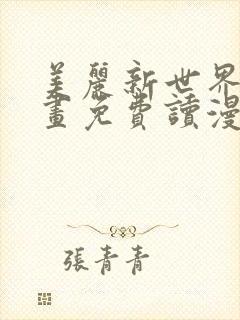 美麗新世界
畫免費讀漫
張青青